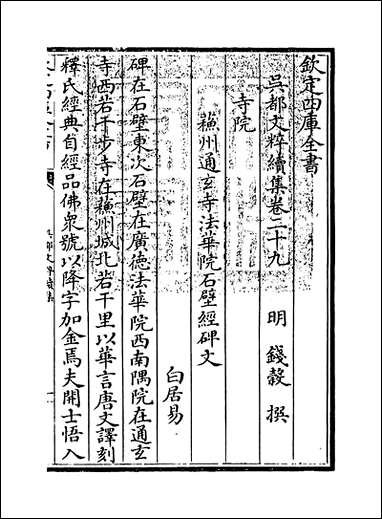 欽定四庫全書
吳都文粹續集卷二十九
明 錢榖 撰
寺院
蘇州通玄寺法華院石壁經碑文
白居易
碑在石壁東次石壁在廣德法華院西南隅院在通玄
寺西若干步寺在蘇州城北若干里以華言唐文譯刻
釋氏經典自經品佛衆號以降字加金焉夫開士悟入
吳都文粹續集